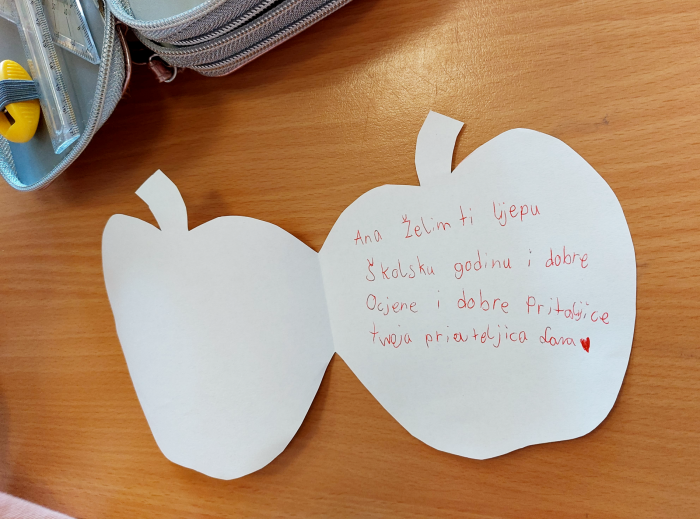 Ana Želim ti lijepu
Školsku godinu i dobre
Ocjene i dobre
twoja prieteljica Lana